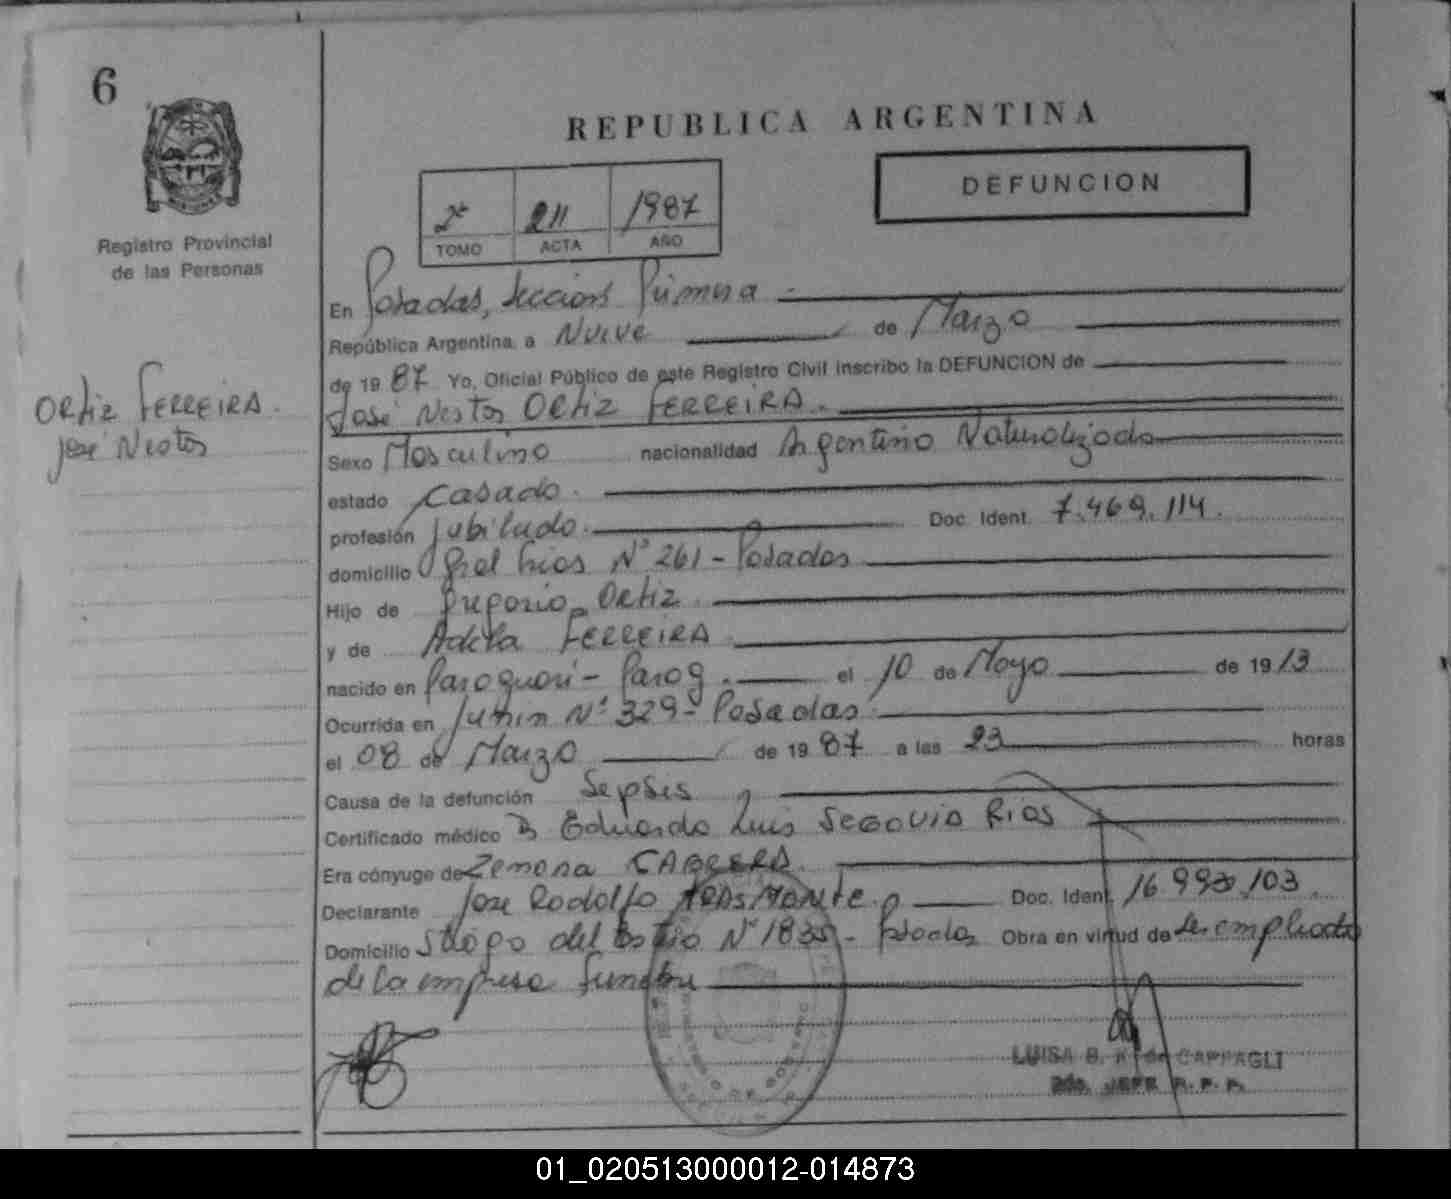 6
REPUBLICA ARGENTINA
DEFUNCION
2º 211 1987
TOMO ACTA AÑO
Registro Provincial
de las Personas
ORtiz FERREIRA.
José Nestor
En Posadas, Sección Primera
República Argentina, a Nueve de Marzo
de 19 87 Yo, Oficial Público de este Registro Civil inscribo la DEFUNCION de
José Nestor ORtiz FERREIRA.
Sexo Masculino nacionalidad Argentino Naturalizado
estado Casado.
profesión jubilado. Doc. Ident. 7.469.114.
domicilio Gral Frias Nº 261 - Posadas
Hijo de Gregorio ORtiz
y de Adela FERREIRA
nacido en Paraguarí - Parag. el 10 de Mayo de 19 13
Ocurrida en Junin Nº 329 - Posadas
el 08 de Marzo de 19 87 a las 23 horas
Causa de la defunción Sepsis
Certificado médico Eduardo Luis SEGOVIA RIOS
Era cónyuge de Zenona CABRERA.
Declarante Jose Rodolfo Doc. Ident. 16.993.103
Domicilio del Nº 1835 - Posadas Obra en virtud de ser empleado
de la empresa funebre
LUISA B. de CAPPAGLI
2do. JEFE R. P. P.
01_020513000012-014873